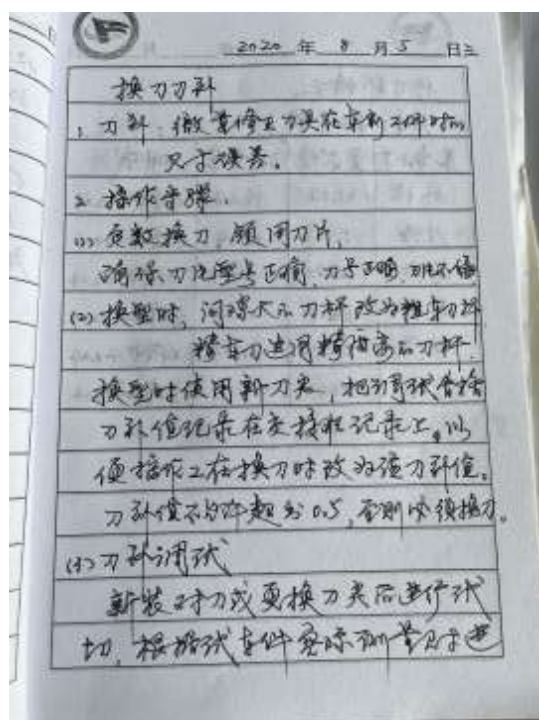 2020 年 8 月 5 日三
换刀刀补
1. 刀补：微量修正刀具在车削工件时的
尺寸误差。
2. 操作步骤。
(1) 定数换刀，领用刀片，
确保刀片型号正确，刀号正确，刀片不错
(2) 换型时，间隙大的刀杆改为粗车刀杆
精车刀选用精度高的刀杆.
换型时使用新刀尖，把调试合格
刀补值记录在交接班记录上，以
便操作工在换刀时改为该刀补值。
刀补值不允许超出0.5，否则必须换刀。
(3) 刀补调试
新装对刀或更换刀尖后进行试
切，根据试车件实际测量尺寸进